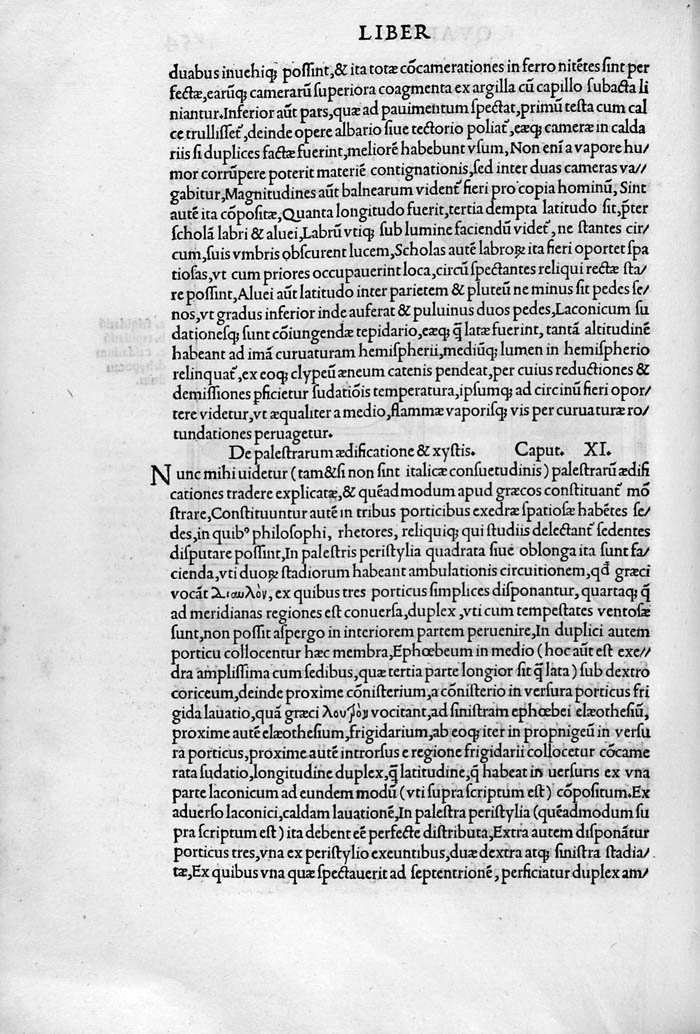 LIBER
duabus inuehiq; poſſint,& ita totæ cõcamerationes in ferro nitẽtes ſint per
fectæ,earũq; camerarũ ſuperiora coagmenta ex argilla cũ capillo ſubacta li
niantur.Inferior aũt pars,quæ ad pauimentum ſpectat,primũ teſta cum cal
ce trulliſſet᷑,deinde opere albario ſiue tectorio poliat᷑,eæq; cameræ in calda
riis ſi duplices factæ fuerint,meliorẽ habebunt vſum,Non eni̅ a vapore hu/
mor corrũpere poterit materiẽ contignationis,ſed inter duas cameras va//
gabitur,Magnitudines aũt balnearum vident᷑ fieri pro copia hominũ, Sint
autẽ ita cõpoſitæ,Quanta longitudo fuerit,tertia dempta latitudo ſit,p̃ter
ſcholã labri & aluei,Labrũ vtiq; ſub lumine faciendũ videt᷑, ne ſtantes cir/
cum,ſuis vmbris obſcurent lucem,Scholas autẽ labroꝝ ita fieri oportet ſpa
tioſas,vt cum priores occupauerint loca,circũ ſpectantes reliqui rectæ ſta/
re poſſint,Aluei aũt latitudo inter parietem & pluteũ ne minus ſit pedes ſe/
nos,vt gradus inferior inde auferat & puluinus duos pedes,Laconicum ſu
dationeſq; ſunt cõiungendæ tepidario,eæq; q̃ latæ fuerint, tantã altitudinẽ
habeant ad imã curuaturam hemiſpherii,mediũq; lumen in hemiſpherio
relinquat᷑,ex eoq; clypeũ æneum catenis pendeat,per cuius reductiones &
demiſſiones pficietur ſudatiõis temperatura,ipſumq; ad circinũ fieri opor/
tere videtur,vt æqualiter a medio,flammæ vaporiſq; vis per curuaturæ ro/
tundationes peruagetur.
De palæſtrarum ædificatione & xyſtis. Caput. XI.
Nunc mihi uidetur (tam&ſi non ſint italicæ conſuetudinis) palæſtrarũ ædifi
cationes tradere explicatæ,& quẽadmodum apud græcos conſtituant᷑ mõ
ſtrare,Conſtituuntur autẽ in tribus porticibus exedræ ſpatioſæ habẽtes ſe/
des,in quibꝰ philoſophi, rhetores, reliquiq; qui ſtudiis delectant᷑ ſedentes
diſputare poſſint,In palæſtris periſtylia quadrata ſiue oblonga ita ſunt fa/
cienda,vti duoꝝ ſtadiorum habeant ambulationis circuitionem,qđ græci
vocãt Διαυλόν, ex quibus tres porticus ſimplices diſponantur, quartaq; q̃
ad meridianas regiones eſt conuerſa,duplex ,vti cum tempeſtates ventoſæ
ſunt,non poſſit aſpergo in interiorem partem peruenire,In duplici autem
porticu collocentur hæc membra,Ephœbeum in medio (hoc aũt eſt exe//
dra ampliſſima cum ſedibus,quæ tertia parte longior ſit q̃ lata) ſub dextro
coriceum,deinde proxime cõniſterium,a cõniſterio in verſura porticus fri
gida lauatio,quã græci λουτρόν vocitant,ad ſiniſtram ephœbei elæotheſiũ,
proxime autẽ elæotheſium,frigidarium,ab eoq; iter in propnigeũ in verſu
ra porticus,proxime autẽ introrſus e regione frigidarii collocetur cõcame
rata ſudatio,longitudine duplex,q̃ latitudine,q̃ habeat in uerſuris ex vna
parte laconicum ad eundem modũ (vti ſupra ſcriptum eſt) cõpoſitum.Ex
aduerſo laconici,caldam lauationẽ,In palæſtra periſtylia (quẽadmodum ſu
pra ſcriptum eſt) ita debent eẽ perfecte diſtributa,Extra autem diſponãtur
porticus tres,vna ex periſtylio exeuntibus,duæ dextra atq; ſiniſtra ſtadia/
tæ,Ex quibus vna quæ ſpectauerit ad ſeptentrionẽ, perficiatur duplex am/